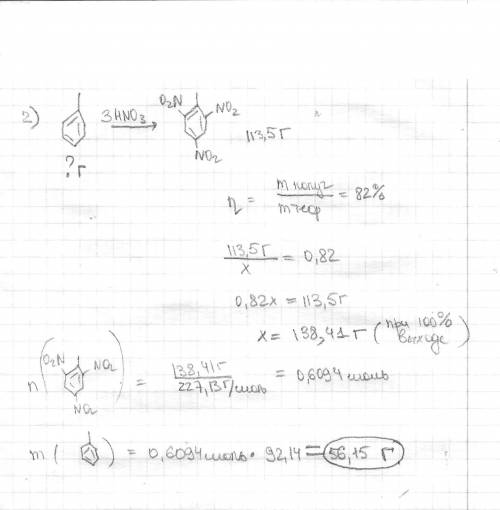 2)
3HNO₃
O₂N
NO₂
NO₂
113,5г
?г
η = m получ / m теор = 82%
113,5г / x = 0,82
0,82x = 113,5г
x = 138,41г (при 100% выходе)
n( O₂N NO₂ NO₂ ) = 138,41г / 227,13г/моль = 0,6094 моль
m ( ) = 0,6094 моль · 92,14 = 56,15 г